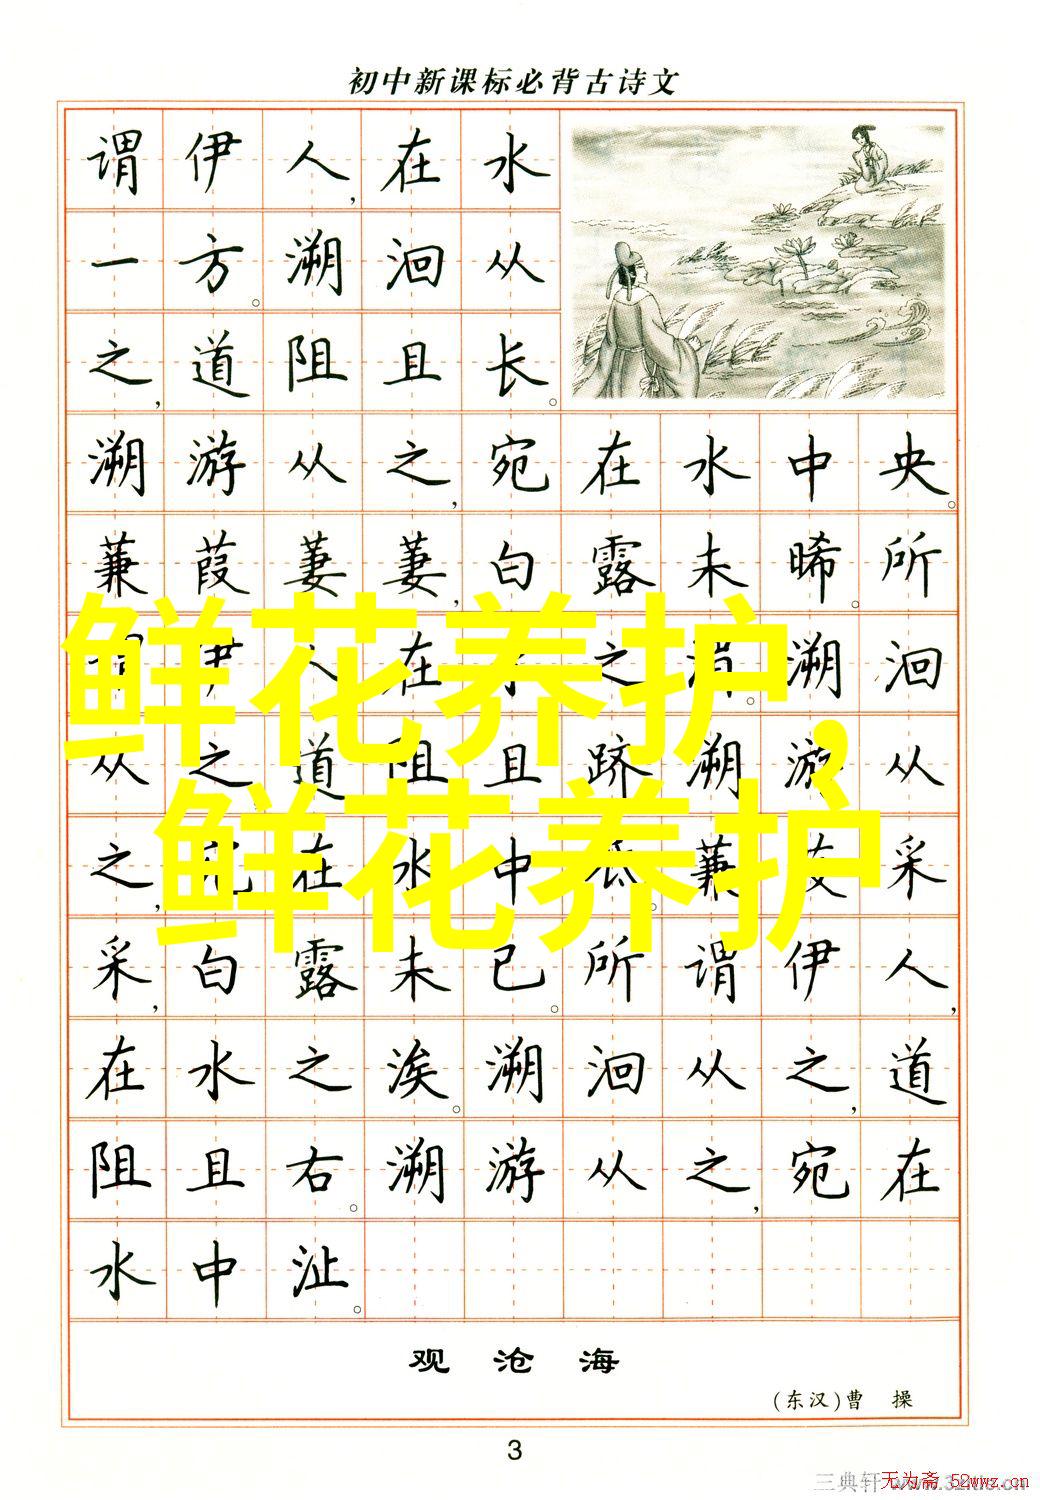 初中新课标必背古诗文
谓伊人,在水
一方。溯洄从
之,道阻且长。
溯游从之,宛在水中央。
蒹葭萋萋,白露未晞。所
谓伊人在水之湄。溯洄
从之道阻且跻溯游从
之,宛在水中坻。蒹葭采
采,白露未已。所谓伊人,
在水之涘。溯洄从之,道
阻且右。溯游从之,宛在
水中沚。
鲜花养护,
鲜花养护
观 沧 海
(东汉)曹 操
3
三典轩
无为斋 52wwz.cn